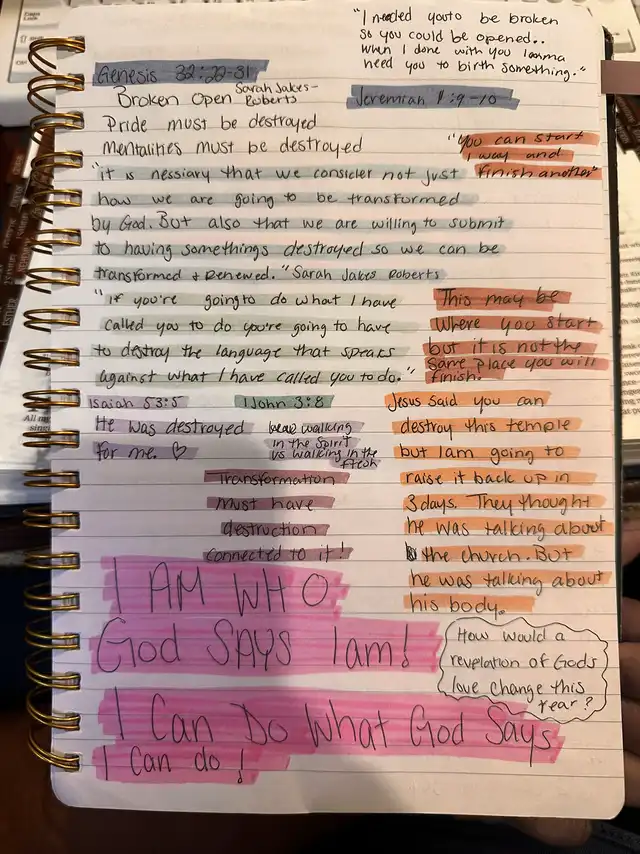 "I needed you to be broken
so you could be opened..
when I done with you Iamma
need you to birth something."
Genesis 32:22-31
Broken Open Sarah Jakes-
Roberts
Jeremiah 1:9-10
Pride must be destroyed
Mentalities must be destroyed
"You can start
1 way and
finish another"
"it is nessiary that we consider not just
how we are going to be transformed
by God. But also that we are willing to submit
to having somethings destroyed so we can be
transformed + Renewed." Sarah Jakes Roberts
"if you're going to do what I have
called you to do you're going to have
to destroy the language that speaks
against what I have called you to do."
This may be
where you start
but it is not the
same place you will
finish.
Isaiah 53:5
1 John 3:8
He was destroyed
for me. ♡
walking
in the Spirit
vs walking in the
flesh
Transformation
must have
destruction
connected to it!
Jesus said you can
destroy this temple
but I am going to
raise it back up in
3 days. They thought
he was talking about
the church. But
he was talking about
his body.
I AM WHO
God SAYS I am!
How would a
revelation of Gods
love change this
year?
I Can Do What God Says
I Can do!
Caps
Lock
ESTHER